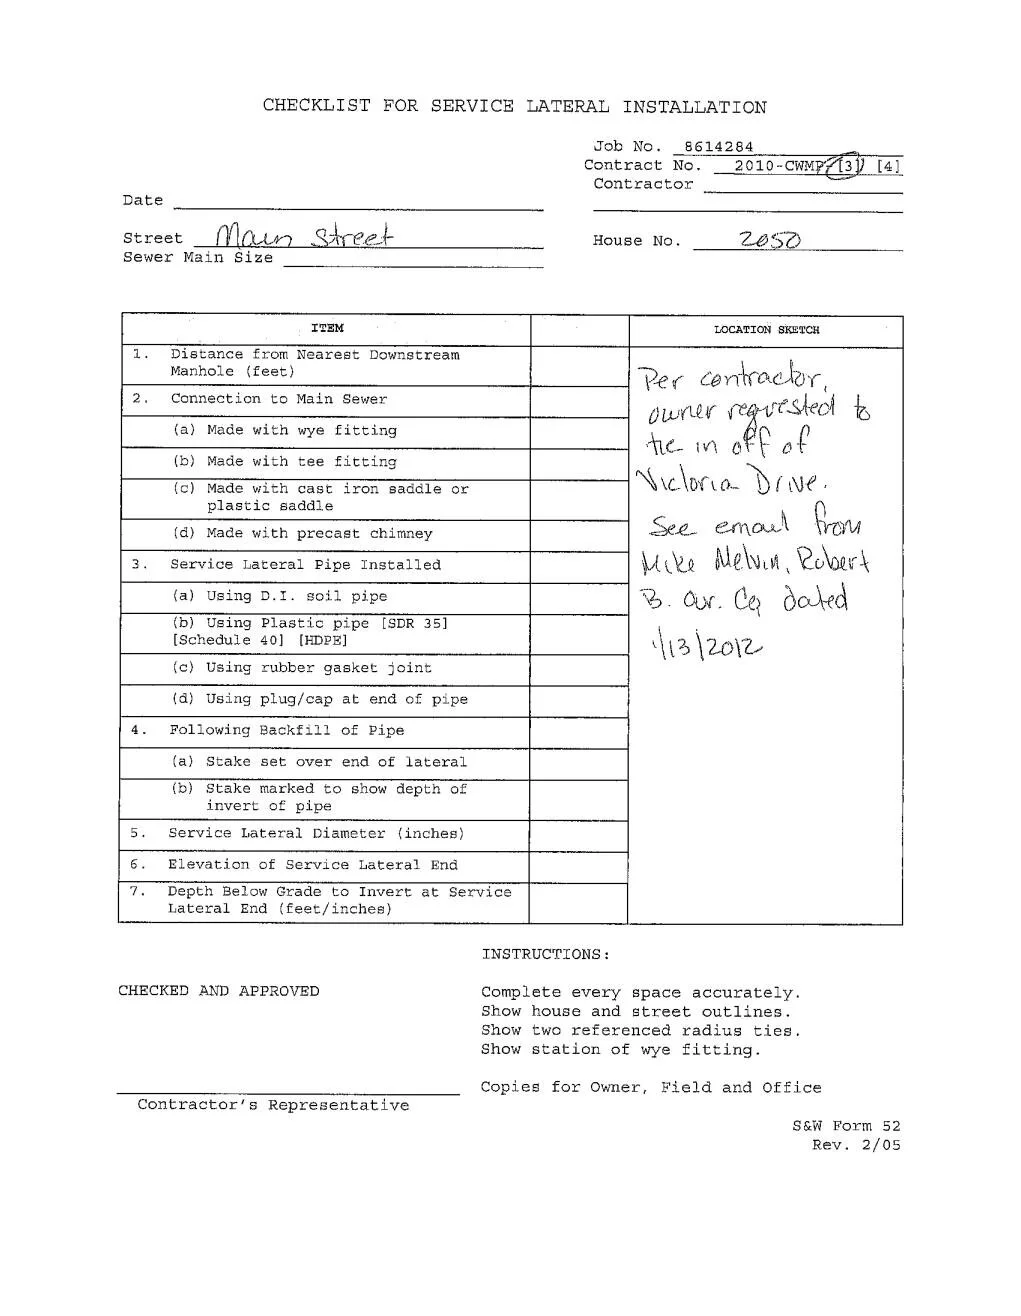 CHECKLIST FOR SERVICE LATERAL INSTALLATION
Job No. 8614284
Contract No. 2010-CWMP-[3] [4]
Contractor
Date
Street Main Street
House No. 2050
Sewer Main Size
ITEM
LOCATION SKETCH
1. Distance from Nearest Downstream
Manhole (feet)
2. Connection to Main Sewer
(a) Made with wye fitting
(b) Made with tee fitting
(c) Made with cast iron saddle or
plastic saddle
(d) Made with precast chimney
3. Service Lateral Pipe Installed
(a) Using D.I. soil pipe
(b) Using Plastic pipe [SDR 35]
[Schedule 40] [HDPE]
(c) Using rubber gasket joint
(d) Using plug/cap at end of pipe
4. Following Backfill of Pipe
(a) Stake set over end of lateral
(b) Stake marked to show depth of
invert of pipe
5. Service Lateral Diameter (inches)
6. Elevation of Service Lateral End
7. Depth Below Grade to Invert at Service
Lateral End (feet/inches)
Per contractor,
owner requested to
tie in off of
Victoria Drive.
See email from
Mike Melvin, Robert
B. Our. Co dated
1/13/2012
INSTRUCTIONS:
CHECKED AND APPROVED
Complete every space accurately.
Show house and street outlines.
Show two referenced radius ties.
Show station of wye fitting.
Copies for Owner, Field and Office
Contractor's Representative
S&W Form 52
Rev. 2/05